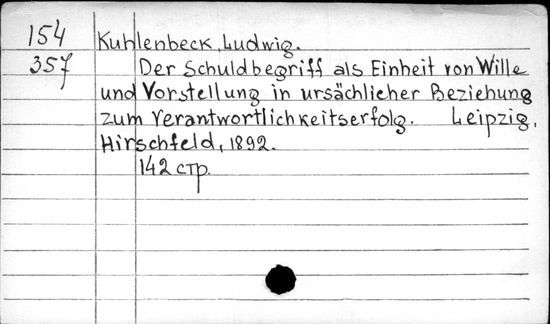 154 Kuhlenbeck, Ludwig.
357 Der Schuldbegriff als Einheit von Wille
und Vorstellung in ursächlicher Beziehung
zum Verantwortlichkeitserfolg. Leipzig,
Hirschfeld, 1892.
142 стр.